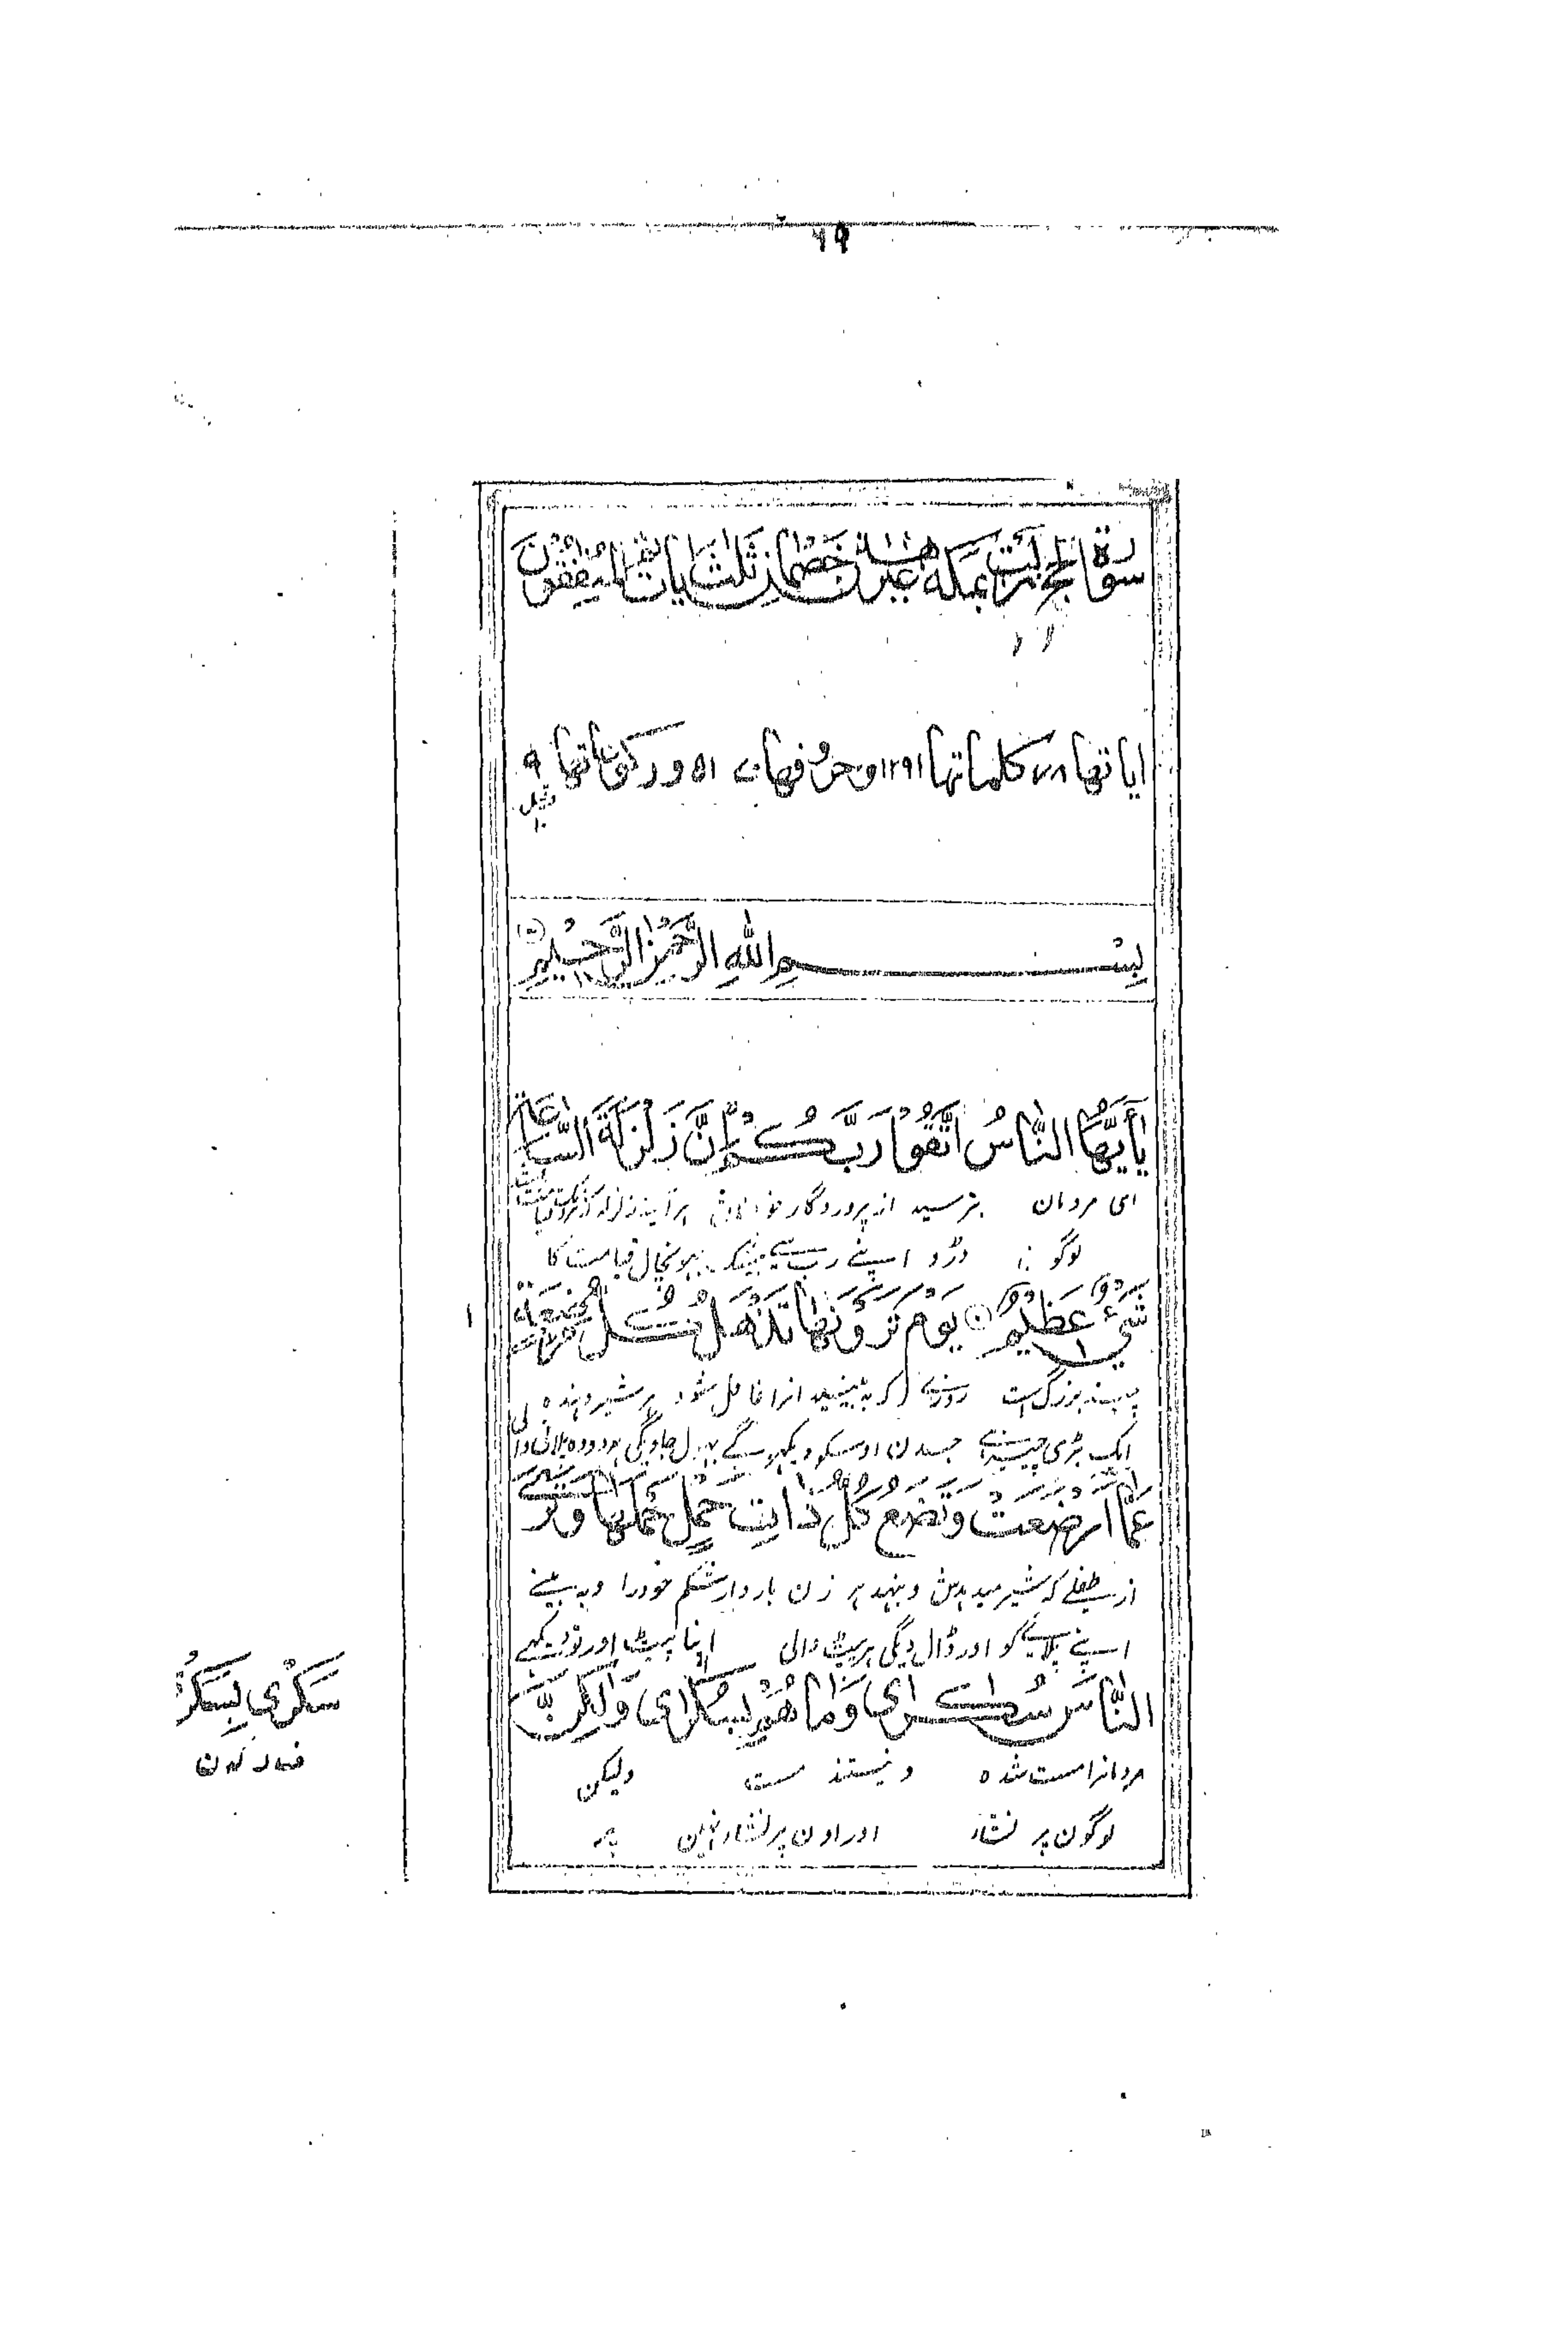 ۶۹
سورة الحج نزلت بمكة غير هذان خصمان ثلث ايات
اياتها ٧٨ كلماتها ١٢٩١ و حروفها ٥١٧٠ و ركوعاتها ٩
وقيل ١٠
بِسْمِ اللهِ الرَّحْمٰنِ الرَّحِيْمِ
يٰأَيُّهَا النَّاسُ اتَّقُوْا رَبَّكُمْ إِنَّ زَلْزَلَةَ السَّاعَةِ
ای مردمان بترسید از پروردگار خود هرآینه زلزله
لوگو ڈرو اپنے رب سے بیشک بهونچال قیامت کا
شَيْءٌ عَظِيْمٌ يَوْمَ تَرَوْنَهَا تَذْهَلُ كُلُّ مُرْضِعَةٍ
۱
چیز بزرگ است روزے که به بینید انرا غافل شود هر شیر دهنده
ایک بڑی چیز ہے جسدن اوسکو دیکهو گے بهول جاویگی هر دوده پلانی والی
عَمَّا أَرْضَعَتْ وَتَضَعُ كُلُّ ذَاتِ حَمْلٍ حَمْلَهَا وَتَرَى
از طفلے که شیر میدهدش و بنهد هر زن باردار شکم خود را و به بینے
اپنے پلائے کو اور ڈال دیگی هر پیٹ والی اپنا پیٹ اور تو دیکهے
النَّاسَ سُكَارٰى وَمَا هُمْ بِسُكَارٰى وَلٰكِنَّ
مردمانرا مست شده و نیستند مست ولیکن
لوگون پر نشہ اور اون پر نشا نہین پر
سَكْرٰى بِسَكْرٰى